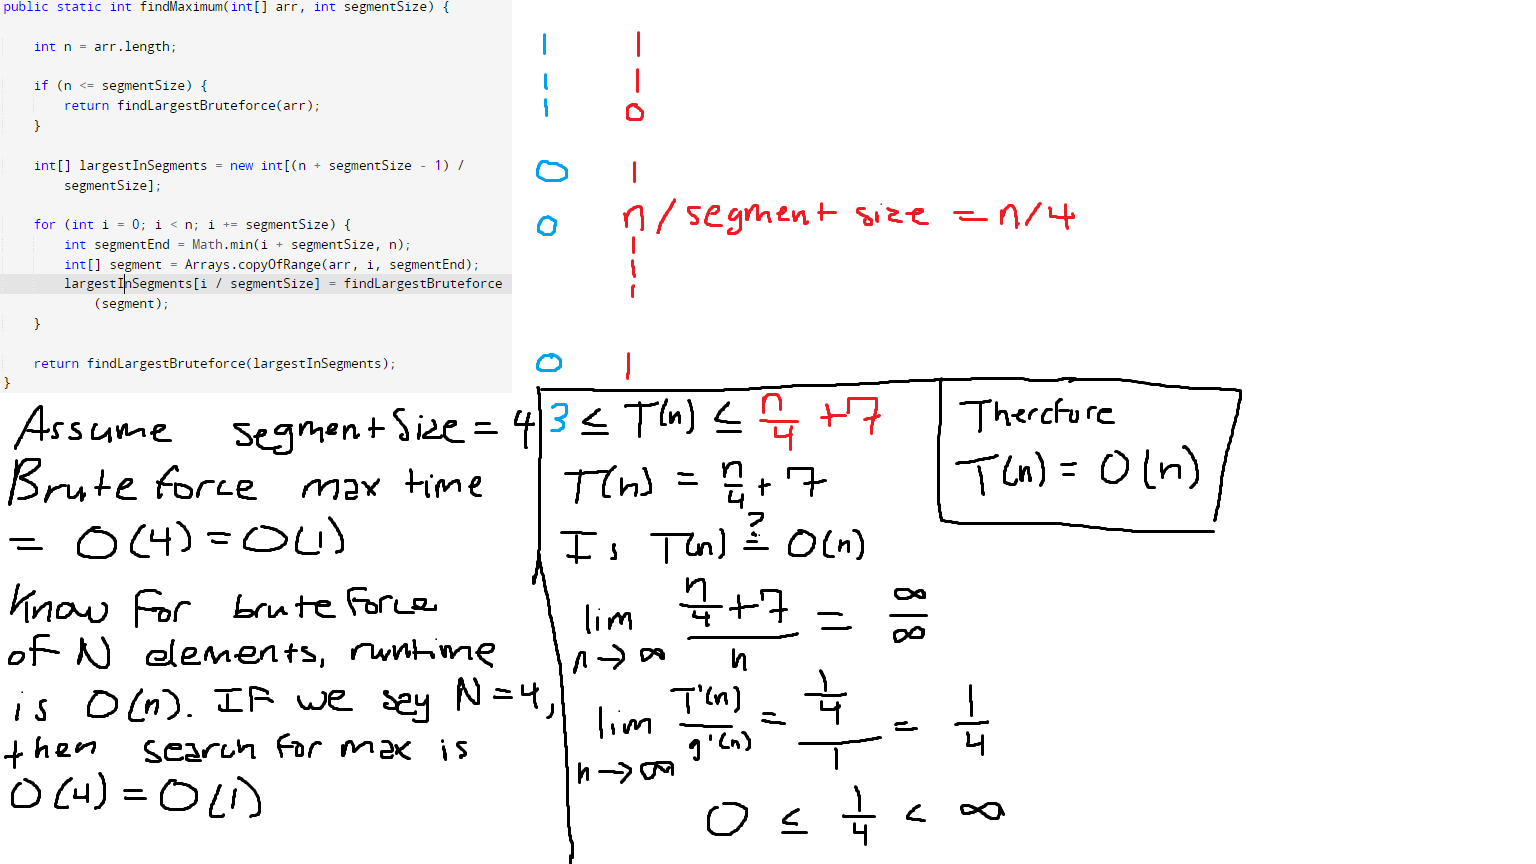 public static int findMaximum(int[] arr, int segmentSize) {
int n = arr.length;
if (n <= segmentSize) {
return findLargestBruteforce(arr);
}
int[] largestInSegments = new int[(n + segmentSize - 1) /
segmentSize];
for (int i = 0; i < n; i += segmentSize) {
int segmentEnd = Math.min(i + segmentSize, n);
int[] segment = Arrays.copyOfRange(arr, i, segmentEnd);
largestInSegments[i / segmentSize] = findLargestBruteforce
(segment);
}
return findLargestBruteforce(largestInSegments);
}
1 1
1 1
1 0
0 1
0 n/segment size = n/4
1
1
1
0 1
Assume segmentSize = 4
Brute force max time
= O(4) = O(1)
Know for brute force
of N elements, runtime
is O(n). If we say N = 4,
then search for max is
O(4) = O(1)
3 ≤ T(n) ≤ n/4 + 7
T(n) = n/4 + 7
Is T(n) ≟ O(n)
lim n→∞ (n/4 + 7)/n = ∞/∞
lim n→∞ T'(n)/g'(n) = (1/4)/1 = 1/4
0 ≤ 1/4 < ∞
Therefore
T(n) = O(n)